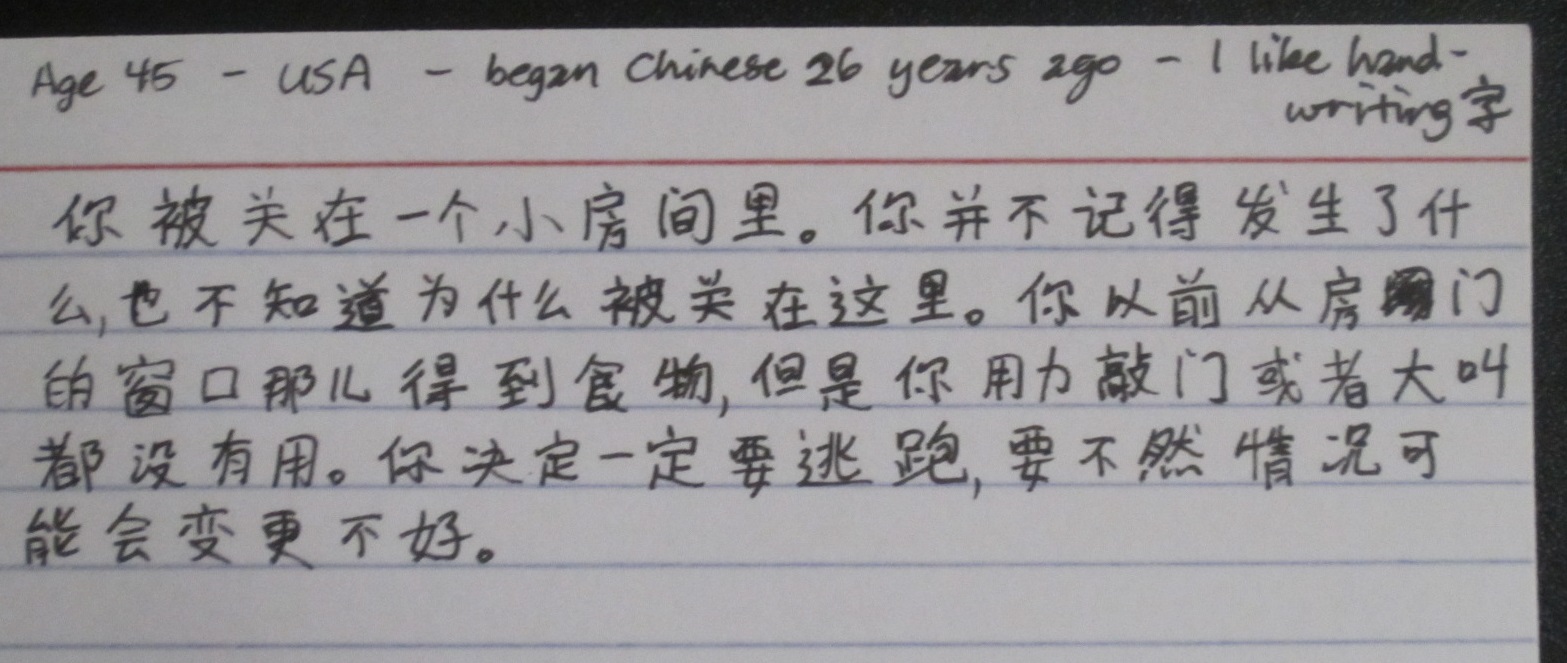 Age 45 - USA - began Chinese 26 years ago - I like hand-
writing 字
你被关在一个小房间里。你并不记得发生了什
么,也不知道为什么被关在这里。你以前从房门
的窗口那儿得到食物,但是你用力敲门或者大叫
都没有用。你决定一定要逃跑,要不然情况可
能会变更不好。